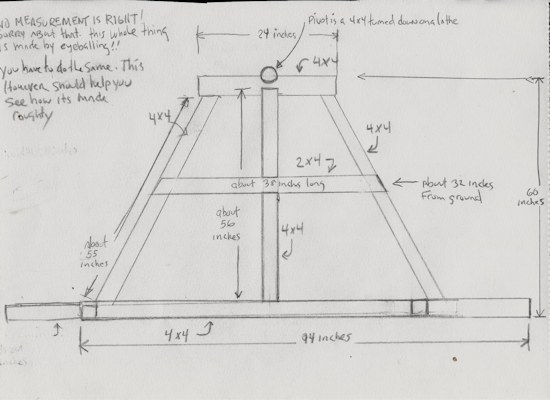 NO MEASUREMENT IS RIGHT!
SORRY About that. this whole thing
is made by eyeballing!!
You have to do the same. This
However should help you
see how its made
roughly
Pivot is a 4x4 turned down on a lathe
24 inches
4x4
4x4
4x4
2x4
about 38 inches long
About 32 inches
From ground
60
inches
about
56
inches
4x4
about
55
inches
4x4
94 inches